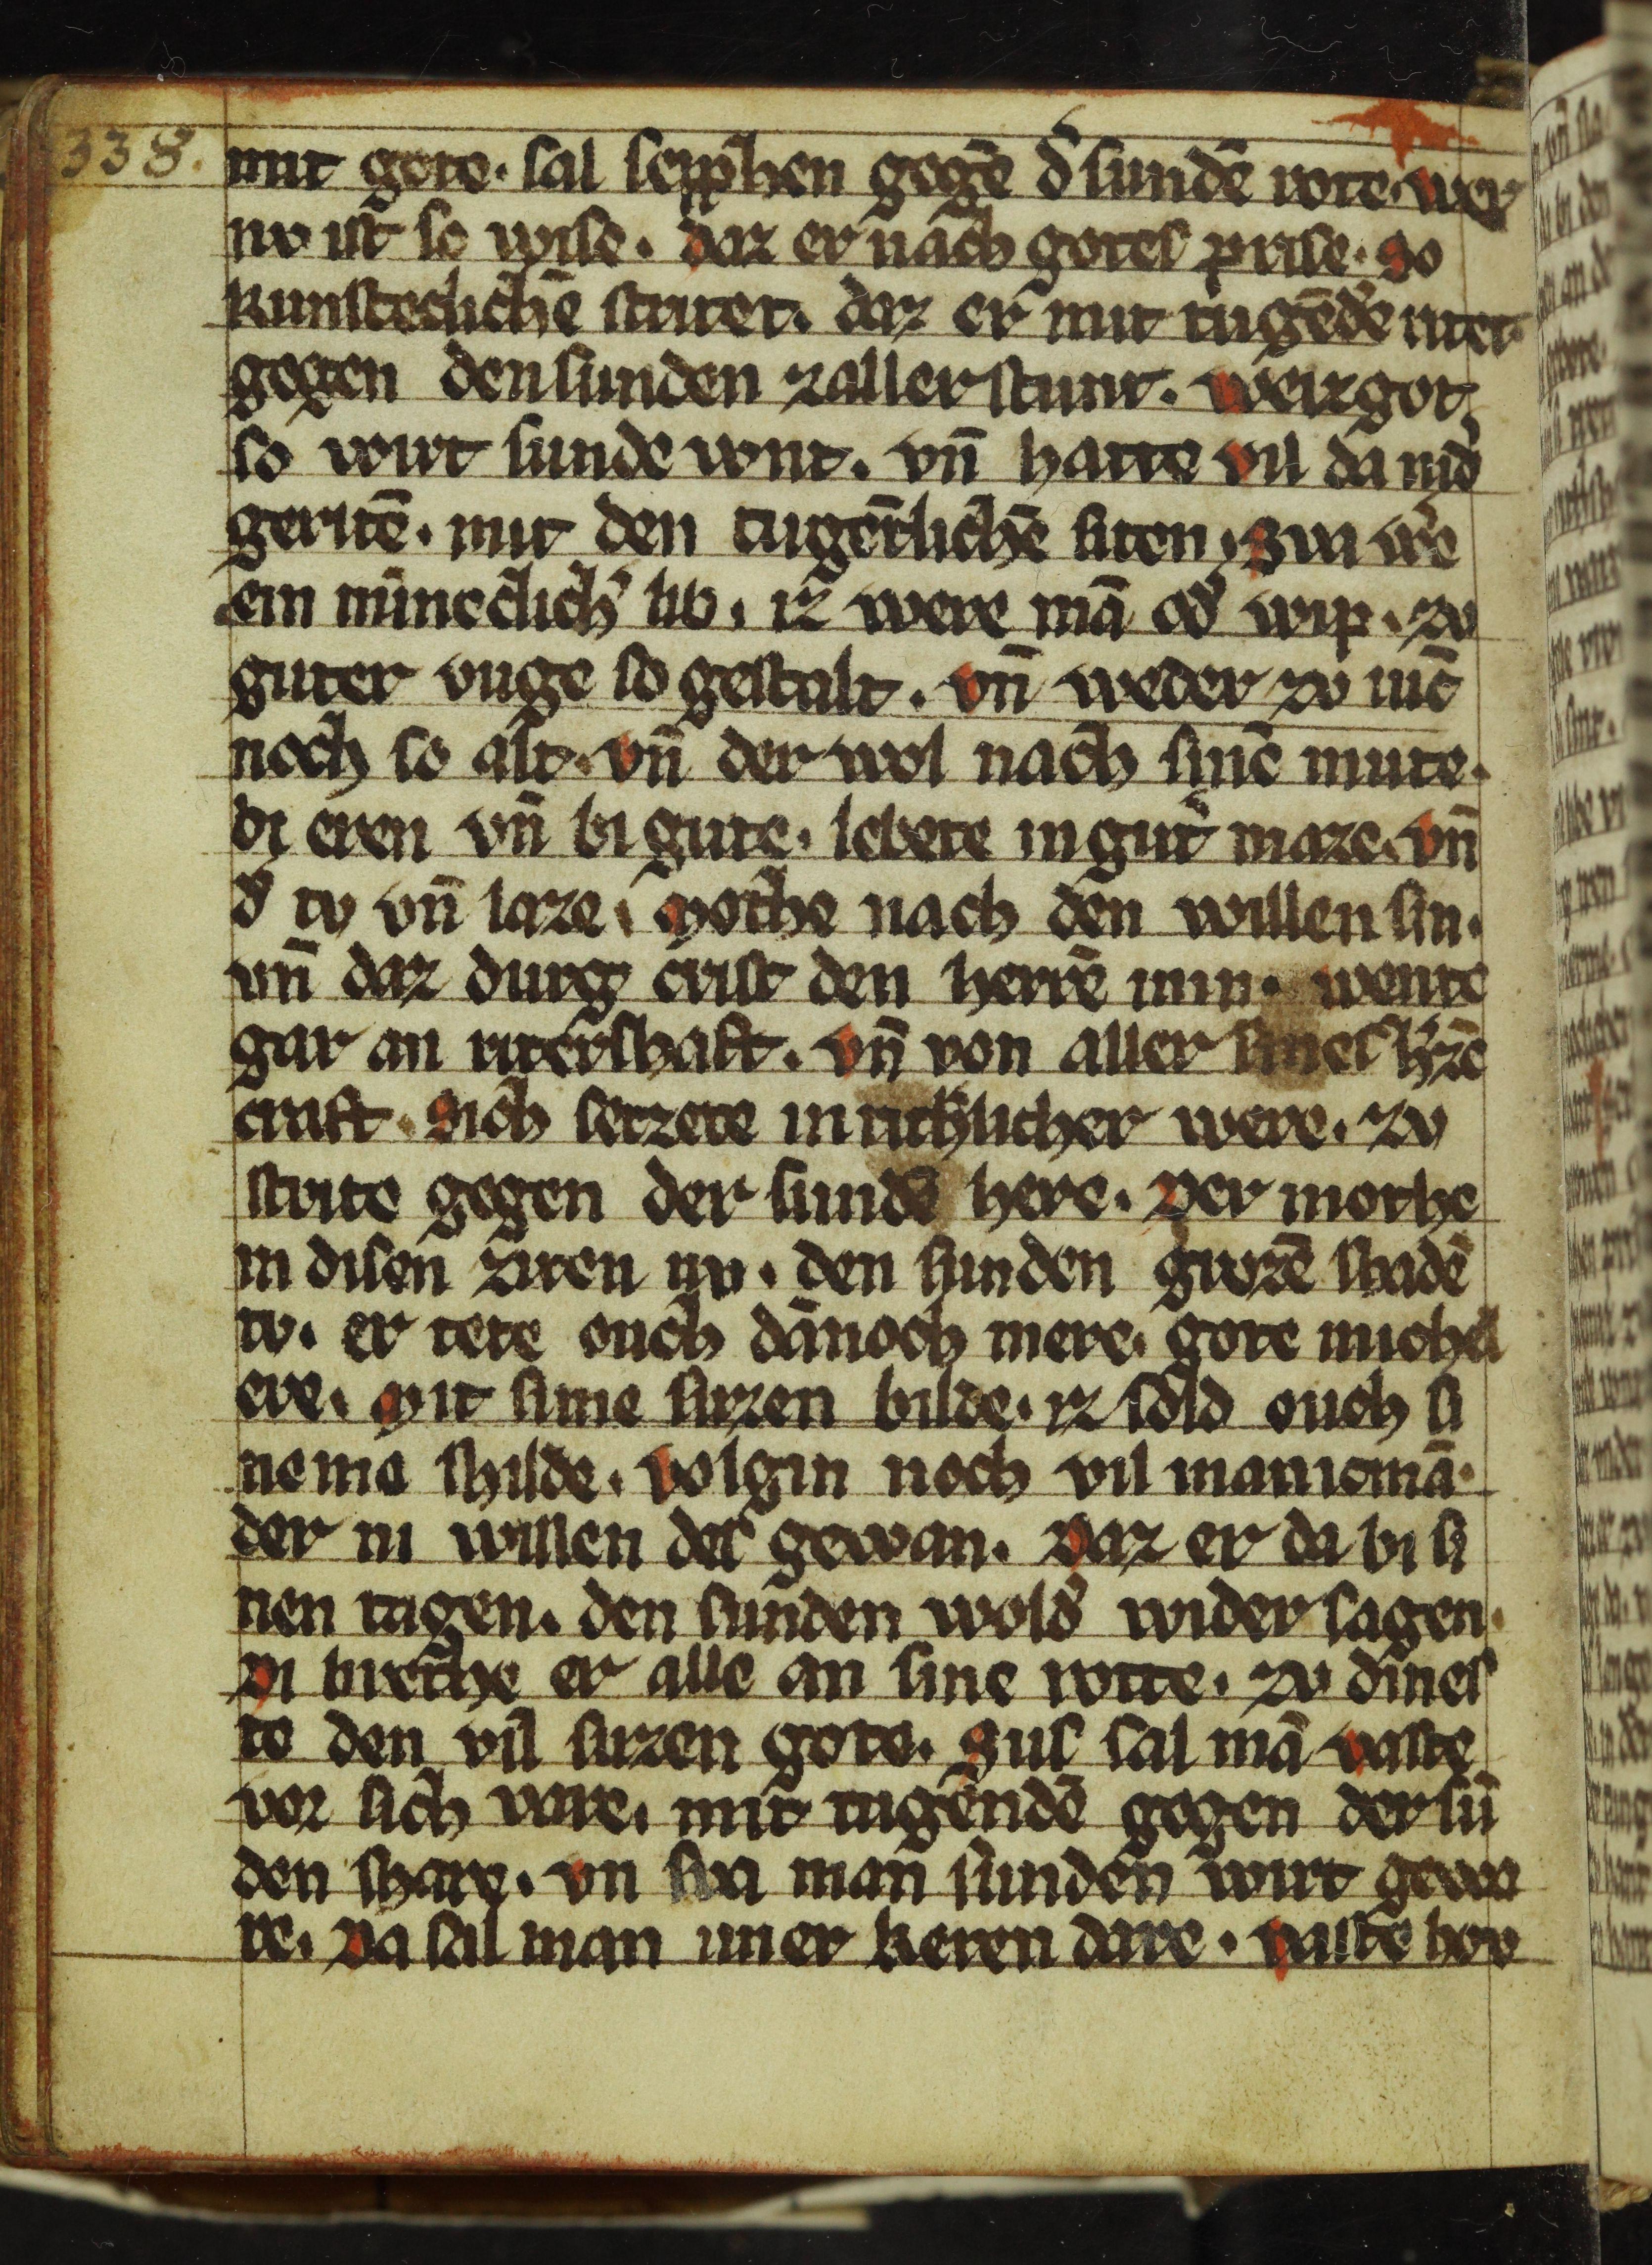 338.
mit gote. sal schephen gegē d̾ sundē rote. wer
nv ist so wise. daz er nach gotes prise. so
kunsteclichē stritet. daz er mit tugēdē ritet
gegen den sunden zaller stunt. weizgot
so wirt sunde wnt. vn̄ hatte vil da nid̾
geritē. mit den tugētlichē siten. swi w̾e
ein mīneclich̾ lib. iz were mā od̾ wip. zv
guter vuge so gestalt. vn̄ weder zv iuc̄
noch so alt. vn̄ der wol nach sinē mute.
bi eren vn̄ bi gute. lebete in gut̾ maze. vn̄
d̾ tv vn̄ laze. mothe nach den willen sin.
vn̄ daz durg crist den herrē min. wente
gar an riterschaft. vn̄ von aller sines h̾zē
craft. sich setzete in ritt̾licher were. zv
strite gegen der sundē here. der mothe
in disen ziten nv. den sunden grozē schadē
tv. er tete ouch dānoch mere. gote michel
ere. mit sime suzen bilde. iz sold ouch si
neme schilde. volgin noch vil manicmā.
der ni willen des gewan. daz er da bi si
nen tagen. den sunden wold̾ wider sagen.
di brethe er alle an sine rotte. zv dines
te den vil suzen gote. sus sal mā vaste
vor sich vare. mit tugendē gegen der sū
den schare. vn swa man sunden wirt gewa
re. da sal man im er keren dare. vaste hov